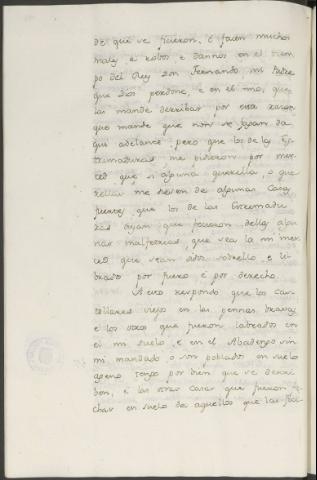 de que se ficieron, é facen muchos
males e robos e dannos en el tiem
po del Rey Don Fernando mi Padre
que Dios perdone, e en el mio, que
las mande derribar por esta razon
que mande que non se fagan da
qui adelante, pero que los de las Es
tremaduras, me pidieron por mer
ced que si alguna querella, o que
rellas me dieren de algunas Casas
fuertes, que los de las Estremadu
ras ayan que ficieron dellas algu
nas malfetrias, que sea la mi mer
ced que sean oidos sobrello, e li
brado por fuero é por derecho.
A esto respondo que los cas
tellares viejos en las pennas bravas
e los otros que fueron labrados en
el mi suelo, e en el Abadengo sin
mi mandado o son poblados en suelo
ageno tengo por bien que se derri
ben, e las otras Casas que fueron fe
chas en suelo de aquellos que las